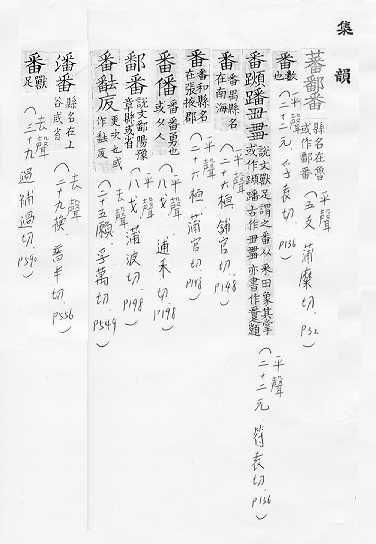 集韻
蕃鄱番 縣名在魯或作鄱番 (五支 蒲糜切 P32)
番 數也 (平聲 二十二元 孚袁切 P136)
番 獸足謂之番从釆田象其掌 (平聲 二十二元 符袁切 P136)
番 番禺縣名在南海 (平聲 二十六桓 鋪官切 P148)
番 番和縣名在張掖郡 (平聲 二十六桓 蒲官切 P148)
番僠 番番勇也或从人 (平聲 八戈 逋禾切 P198)
鄱番 說文鄱陽豫章縣或省 (平聲 八戈 蒲波切 P198)
番 更次也或作 (去聲 二十五願 孚萬切 P549)
潘番 縣名在上谷或省 (去聲 二十九換 普半切 P556)
番 獸足 (去聲 三十九過 補過切 P590)